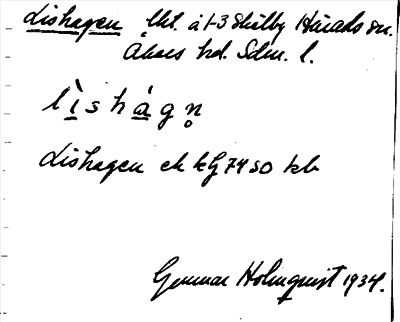 Lishagen lht. å 1-3 Skälby Härads sn.
Åkers hd. Sdm. l.
lìshágn̥
Lishagen ek kbg 7450 kb
Gunnar Holmquist 1934.